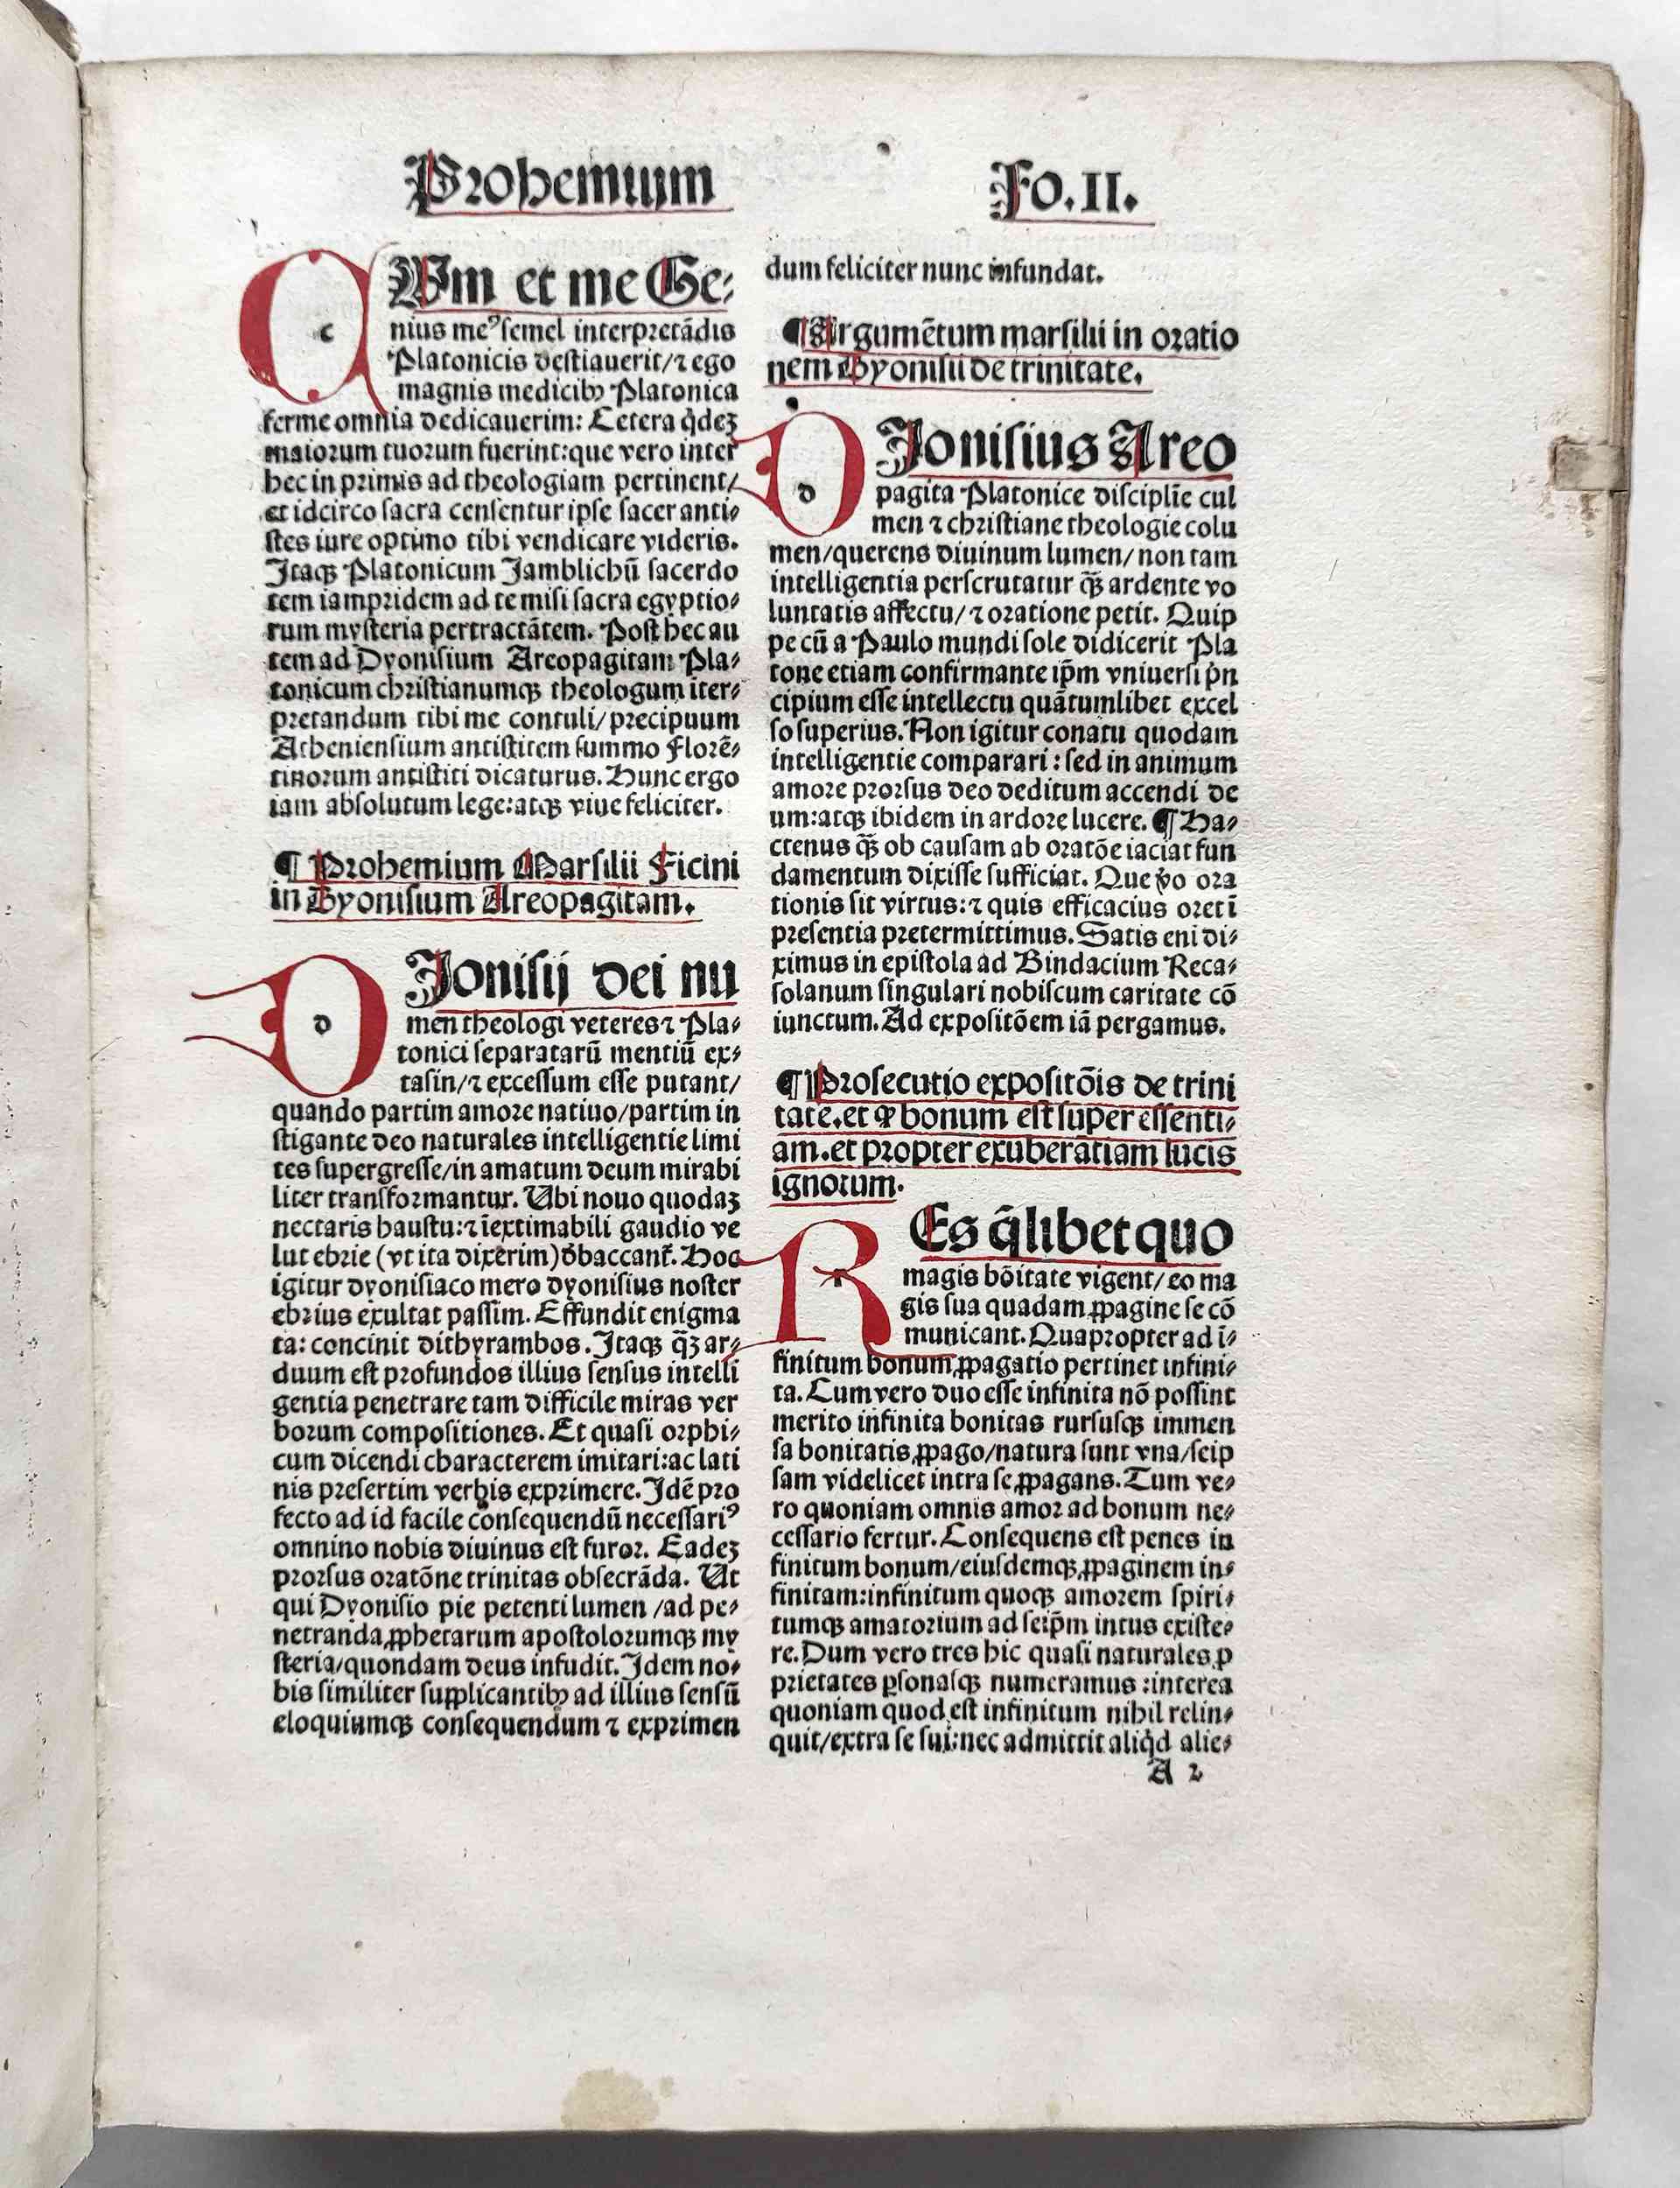 Prohemium
Fo.II.
CUm et me Ge⸗
nius meꝰ semel interpretādis
Platonicis destiauerit/⁊ ego
magnis medicibꝰ Platonica
ferme omnia dedicauerim: Cetera q̇deꝫ
maiorum tuorum fuerint:que vero inter
hec in primis ad theologiam pertinent/
et idcirco sacra censentur ipse sacer anti⸗
stes iure optimo tibi vendicare videris.
Itaqꝫ Platonicum Jamblichū sacerdo
tem iampridem ad te misi sacra egyptio⸗
rum mysteria pertractātem. Post hec au
tem ad Dyonisium Areopagitam Pla⸗
tonicum christianumqꝫ theologum īter⸗
pretandum tibi me contuli/precipuum
Atheniensium antistitem summo Florē⸗
tinorum antistiti dicaturus. Hunc ergo
iam absolutum lege:atqꝫ viue feliciter.
¶ Prohemium Marsilii Ficini
in Dyonisium Areopagitam.
DJonisij dei nu
men theologi veteres ⁊ Pla⸗
tonici separatarū mentiū ex⸗
tasin/⁊ excessum esse putant/
quando partim amore natiuo/partim in
stigante deo naturales intelligentie limi
tes supergresse/in amatum deum mirabi
liter transformantur. Ubi nouo quodaꝫ
nectaris haustu:⁊ īextimabili gaudio ve
lut ebrie (vt ita dixerim) d̄baccant̄. Hoc
igitur dyonisiaco mero dyonisius noster
ebrius exultat passim. Effundit enigma
ta: concinit dithyrambos. Itaqꝫ q̄ꝫ ar⸗
duum est profundos illius sensus intelli
gentia penetrare tam difficile miras ver
borum compositiones. Et quasi orphi⸗
cum dicendi characterem imitari:ac lati
nis presertim verbis exprimere. Idē pro
fecto ad id facile consequendū necessariꝰ
omnino nobis diuinus est furor. Eadeꝫ
prorsus oratōne trinitas obsecrāda. Ut
qui Dyonisio pie petenti lumen /ad pe⸗
netranda ꝓphetarum apostolorumqꝫ my
steria/quondam deus infudit. Idem no⸗
bis similiter supplicantibꝰ ad illius sensū
eloquiumqꝫ consequendum ⁊ exprimen
dum feliciter nunc infundat.
¶Argumētum marsilii in oratio
nem Dyonisii de trinitate.
DJonisius Areo
pagita Platonice disciplīe cul
men ⁊ christiane theologie colu
men/querens diuinum lumen/ non tam
intelligentia perscrutatur q̄ꝫ ardente vo
luntatis affectu/⁊ oratione petit. Quip
pe cū a Paulo mundi sole didicerit Pla
tone etiam confirmante ip̄m vniuersi p̄n
cipium esse intellectu quātumlibet excel
so superius. Non igitur conatu quodam
intelligentie comparari : sed in animum
amore prorsus deo deditum accendi de
um:atqꝫ ibidem in ardore lucere. ¶ Ha⸗
ctenus q̄ꝫ ob causam ab oratōe iaciat fun
damentum dixisse sufficiat. Que v̊o ora
tionis sit virtus:⁊ quis efficacius oret ī
presentia pretermittimus. Satis eni di⸗
ximus in epistola ad Bindacium Reca⸗
solanum singulari nobiscum caritate cō
iunctum. Ad expositōem iā pergamus.
¶Prosecutio expositōis de trini
tate.et ꝙ bonum est super essenti⸗
am.et propter exuberātiam lucis
ignotum.
REs q̄libet quo
magis bōitate vigent/eo ma
gis sua quadam ꝓpagine se cō
municant. Quapropter ad ī⸗
finitum bonum ꝓpagatio pertinet infini⸗
ta. Cum vero duo esse infinita nō possint
merito infinita bonitas rursusqꝫ immen
sa bonitatis ꝓpago/natura sunt vna/seip
sam videlicet intra se ꝓpagans. Tum ve⸗
ro quoniam omnis amor ad bonum ne⸗
cessario fertur. Consequens est penes in
finitum bonum/eiusdemqꝫ ꝓpaginem in⸗
finitam:infinitum quoqꝫ amorem spiri⸗
tumqꝫ amatorium ad seip̄m intus existe⸗
re. Dum vero tres hic quasi naturales ꝓ
prietates ꝑsonasqꝫ numeramus :interea
quoniam quod est infinitum nihil relin⸗
quit/extra se sui:nec admittit aliq̇d alie⸗
A 2